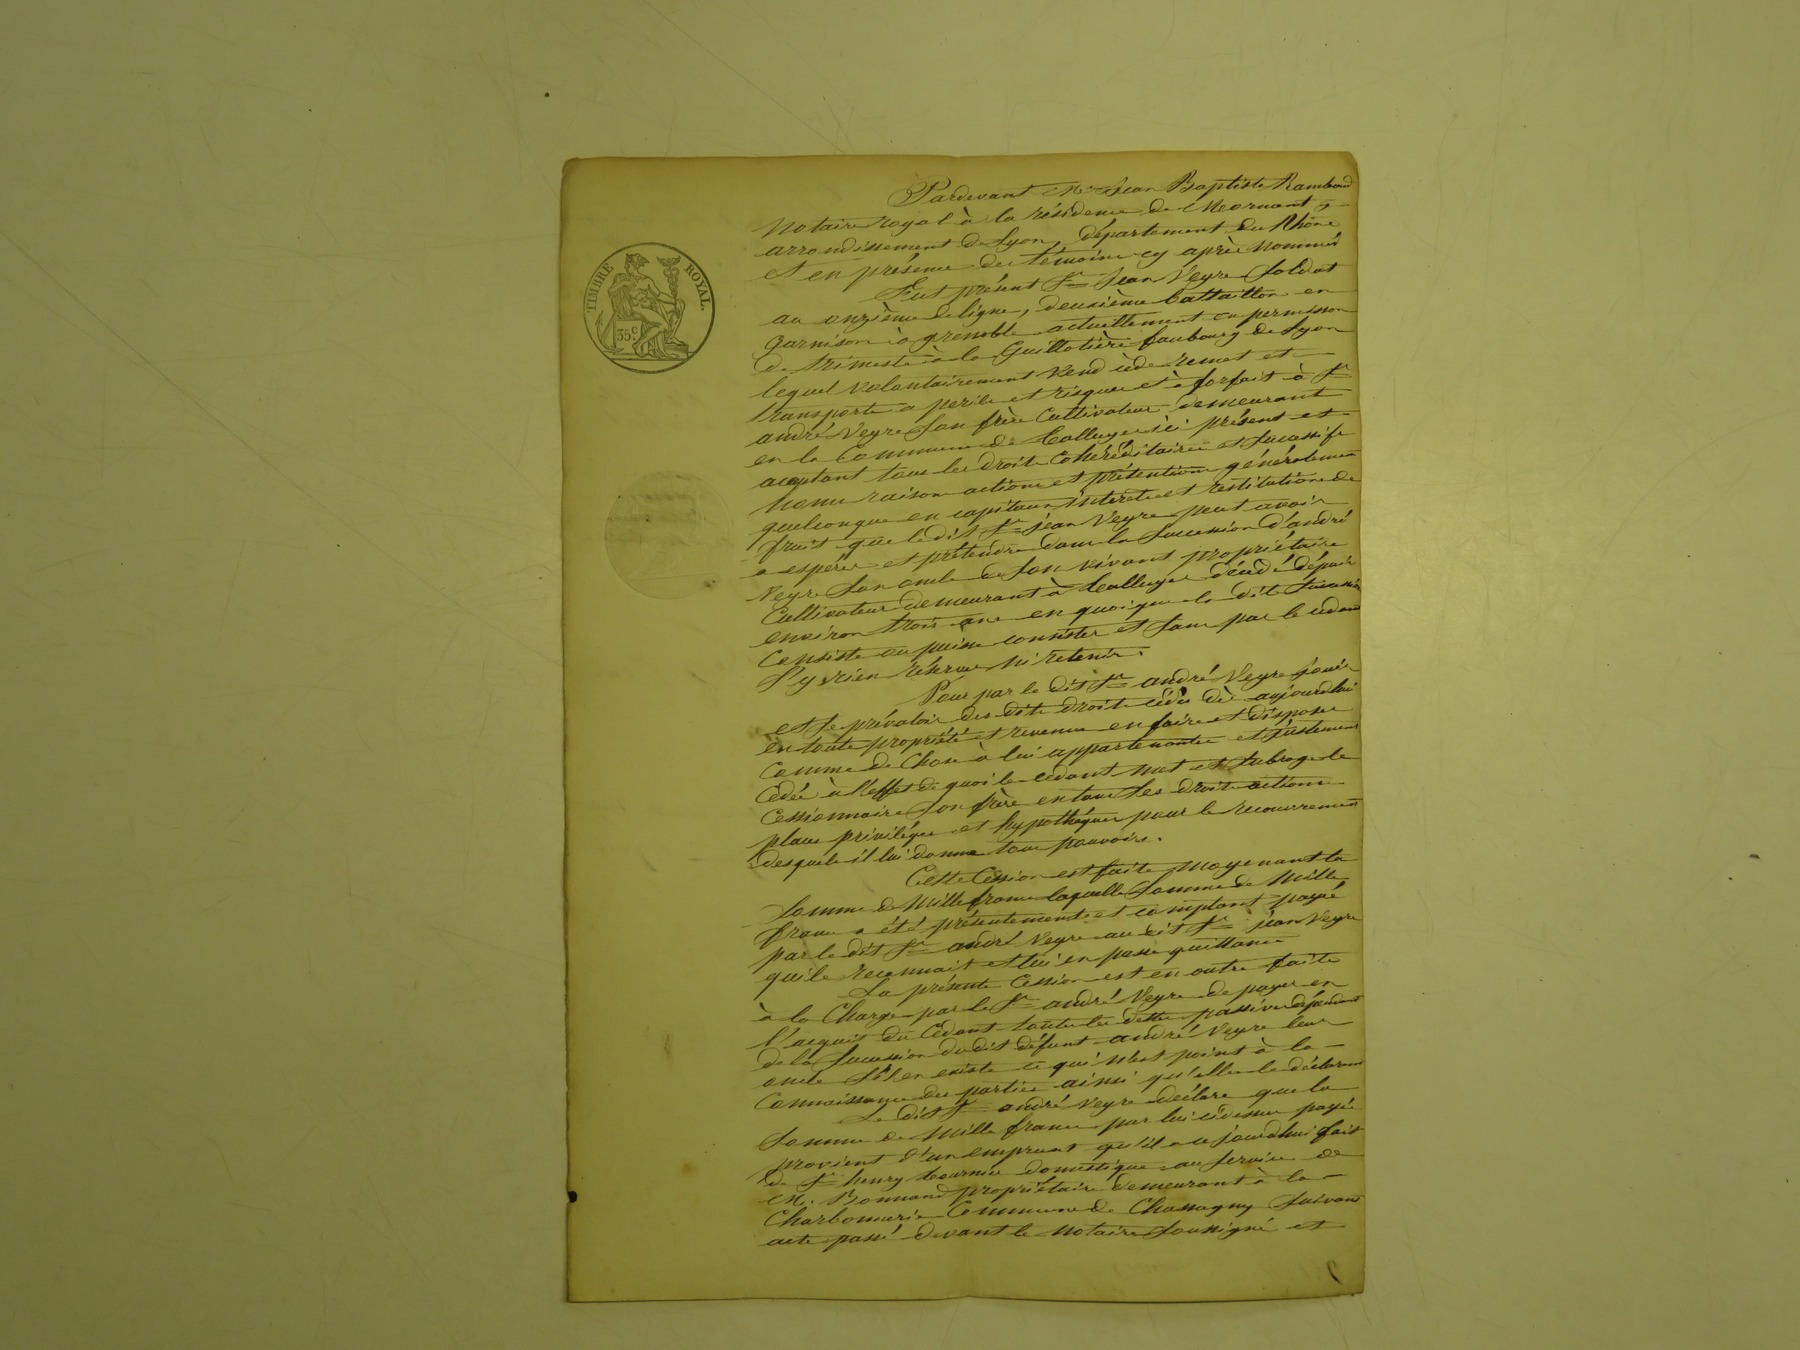 Pardevant Me Jean Baptiste Rambaud
Notaire royal à la résidence de Mornant,
arrondissement de Lyon, département du Rhône
et en présence des témoins cy après nommés
Fut présent Sr Jean Veyre Soldat
au onzième de ligne, deuxième battaillon en
garnison à grenoble actuellement en permission
de trimestre à la Guillotière faubourg de Lyon
lequel volontairement vend cède remet et
transporte a perils et risques et à forfait à Sr
andré Veyre Son frère Cultivateur demeurant
en la Commune de Talluyers ici présent et
acceptant tous les droits Cohéréditaires et Successifs
noms raisons actions et prétentions généralement
quelconques en capitaux intérets et restitutions de
fruits que le dit Sr jean Veyre peut avoir
a espérer et prétendre dans la Succession d'andré
Veyre Son oncle de Son vivant propriétaire
Cultivateur demeurant à Talluyers décédé dépuis
environ trois ans en quoi que la dit Succession
Consiste ou puisse consister et Sans par le cédant
S'y rien réserver ni retenir.
Pour par le dit Sr andré Veyre jouir
et se prévaloir des dits droits cédés dès aujourdhui
en toute propriété et revenus en faire et disposer
Comme de Chose à lui appartenantes et justement
Cédée à l'effet de quoi le cédant met et Subroge le
Cessionnaire Son frère en tous Ses droits actions
place privilèges et hypothèques pour le recouvrement
desquels il lui donne tous pouvoirs.
Cette Cession est faite moyenant la
Somme de Mille francs laquelle Somme de Mille
francs a été présentement et comptant payé
par le dit Sr andré Veyre au dit Sr jean Veyre
qui le reconnait et lui en passe quittance
La présente Cession est en outre faite
à la Charge par le Sr andré Veyre de payer en
l'acquit du Cédant toutes les dettes passives dépendant
de la Succession du dit défunt andré Veyre leur
oncle S'il en existe ce qui n'est point à la
Connaissance des parties ainsi qu'elles le déclarent
Le dit Sr andré Veyre déclare que la
Somme de Mille francs par lui cidessus payée
provient d'un emprunt qu'il a ce jourdhui fait
de Sr henry domestique au Service de
M. Bonnand propriétaire demeurant à la
Charbonnerie Commune de Chassagny Suivant
acte passé devant le notaire Soussigné et
TIMBRE ROYAL.
35c